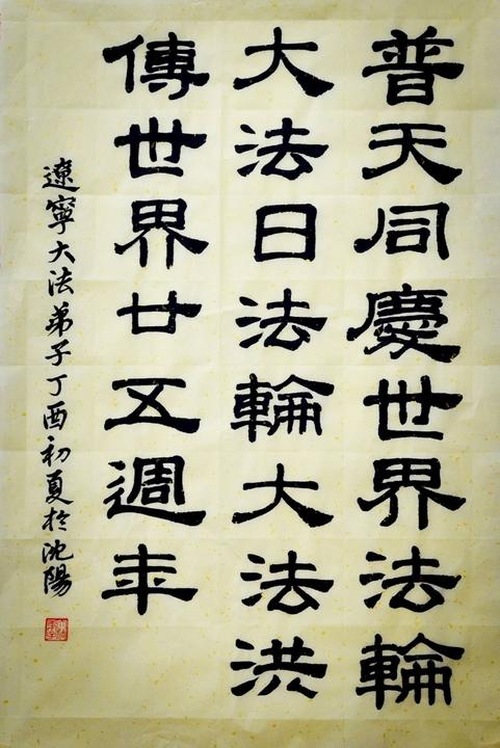 普天同慶世界法輪
大法日法輪大法洪
傳世界廿五週年
遼寧大法弟子丁酉初夏於沈陽